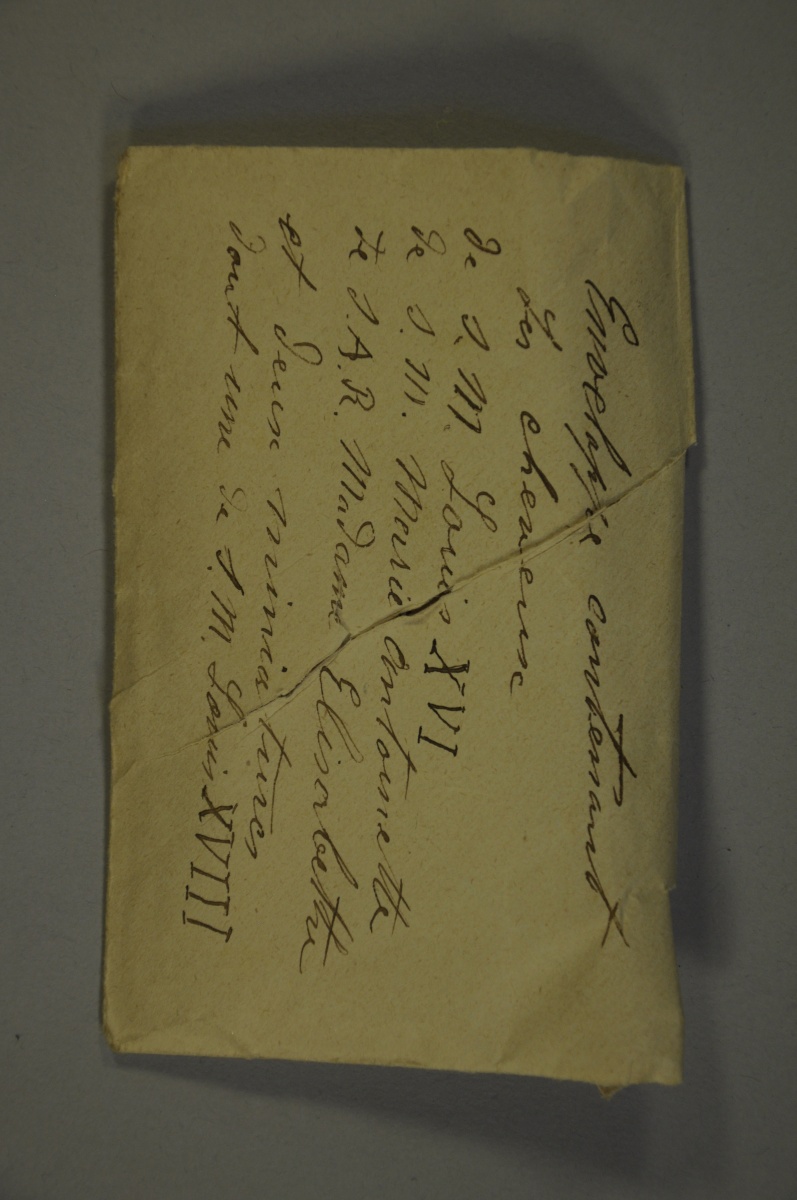 Enveloppe contenant
des cheveux
de S. M. Louis XVI
de S. M. Marie Antoinette
de S. A. R. Madame Elisabethe
et deux miniatures
dont une de S. M. Louis XVIII